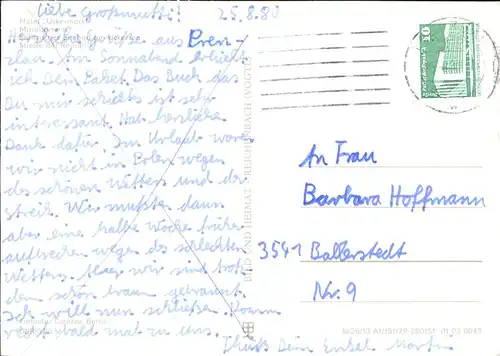 Liebe Großmutti! 25.8.80
Herzliche Grüße aus Prenz-
lau. Am Sonnabend erhielt
ich Dein Paket. Das Buch das
Du mir schicktest ist sehr
interessant. Hab herzlichen
Dank dafür. Im Urlaub waren
wir nicht in Polen wegen
des schönen Wetters und der
Streik. Wir mußten dann
aber eine halbe Woche früher
aufbrechen wegen des schlechten
Wetters. Aber wir sind trotz
dem schön braun gebrannt.
Ich will nun schließen. Komm
recht bald mal zu uns.
Tschüß Dein Enkel Martin
An Frau
Barbara Hoffmann
3541 Ballerstedt
Nr. 9
BILD UND HEIMAT REICHENBACH (VOGTL)
10